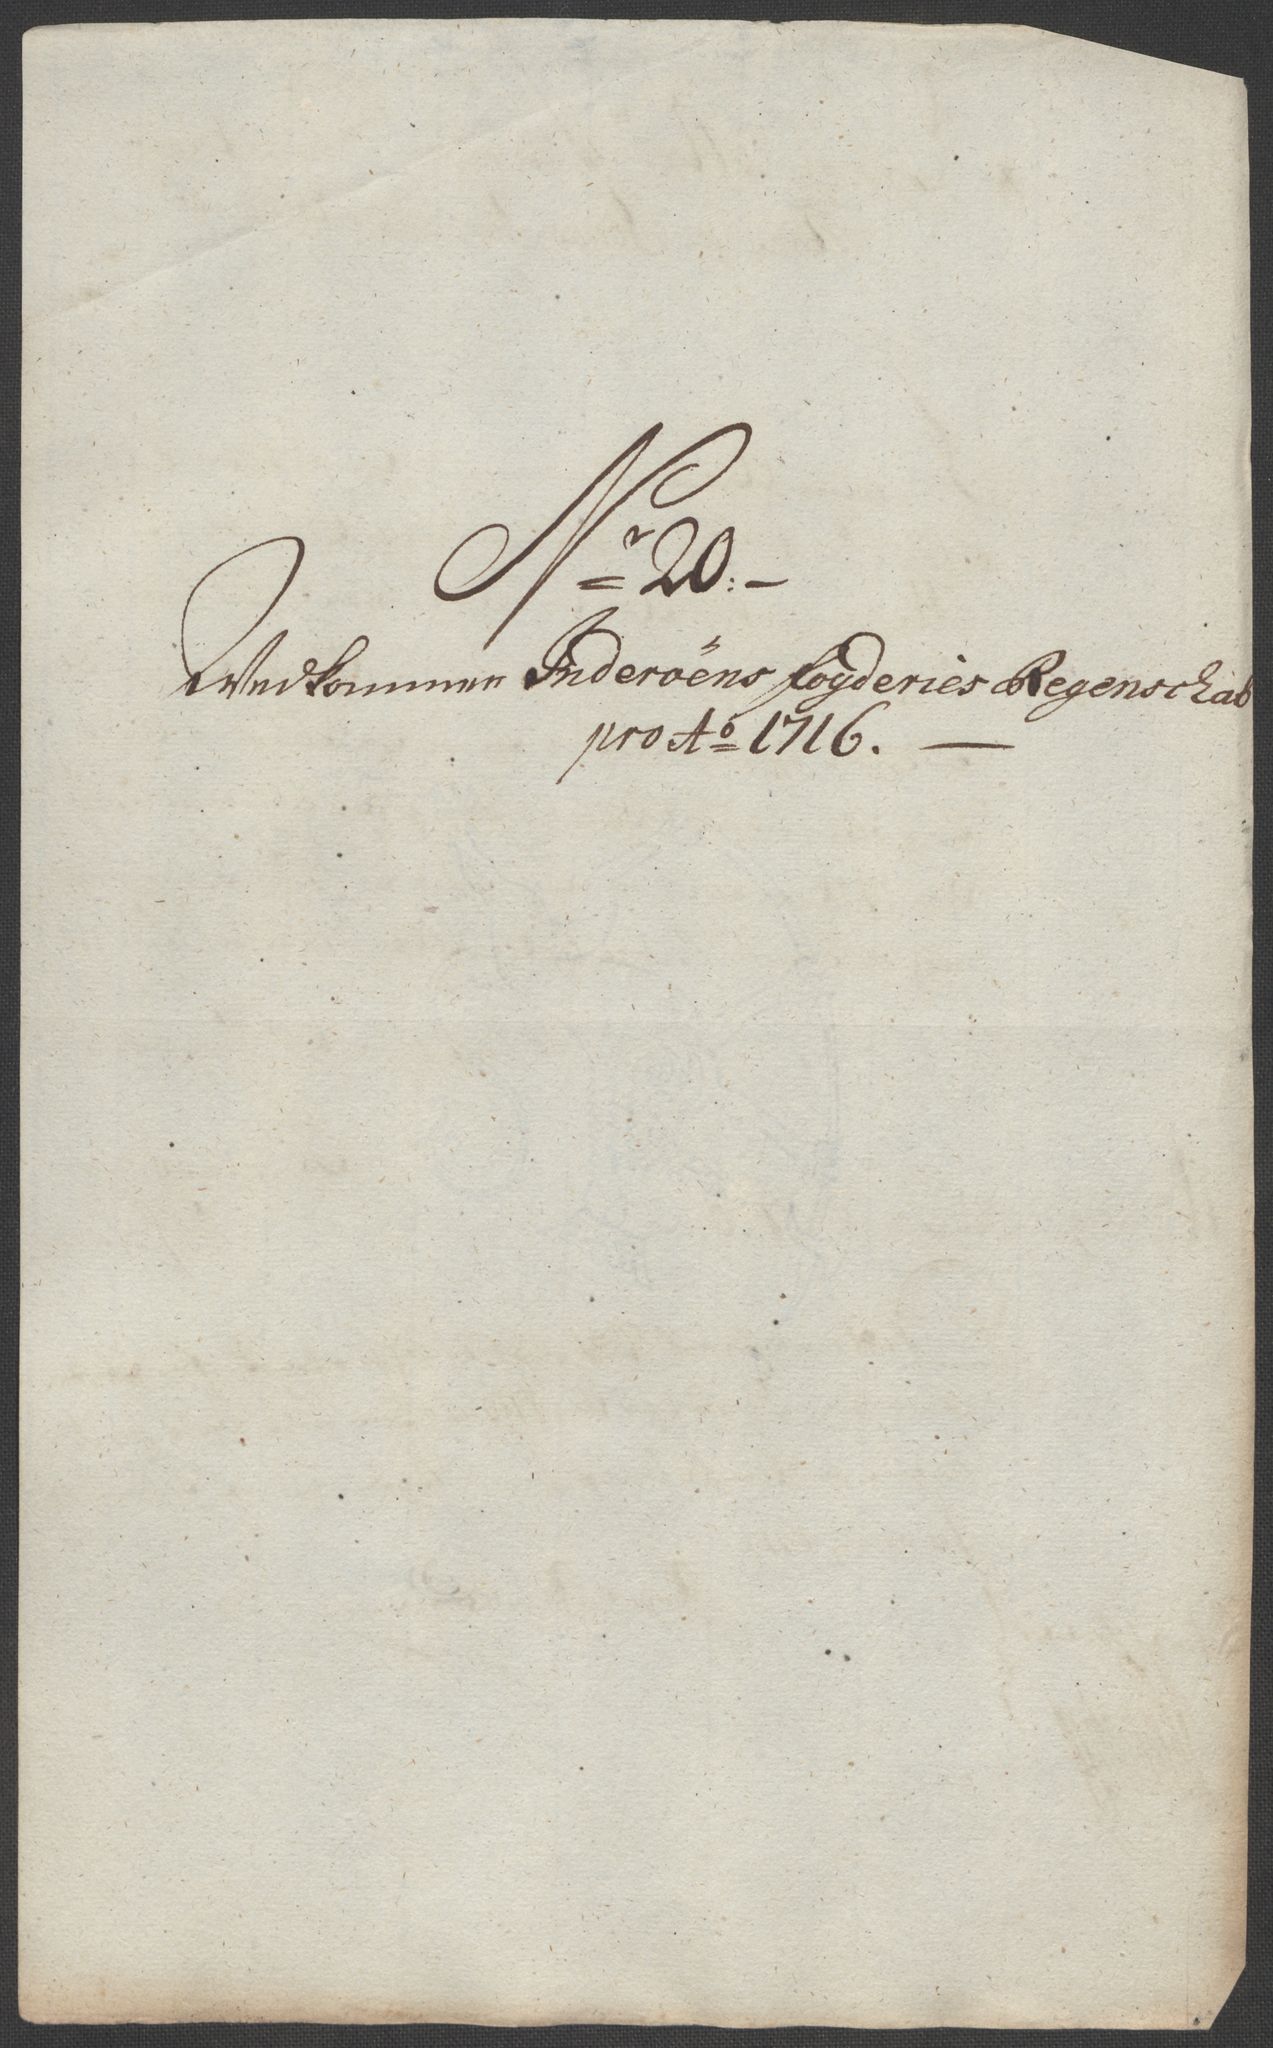 Nr 20:-
Vedkommen Inderöens fogderies Regenschab
pro Ao 1716. —